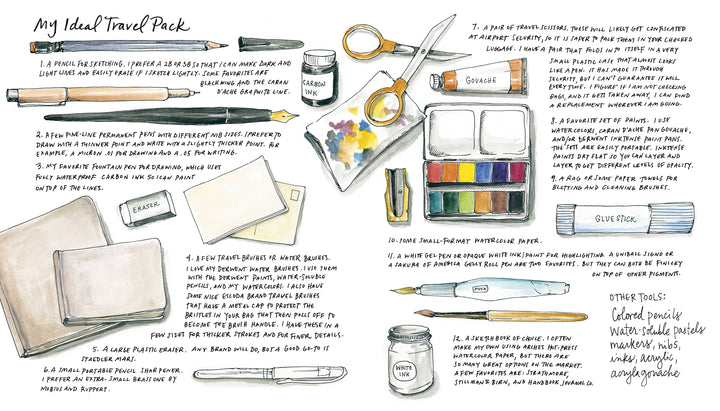 My Ideal Travel Pack
1. A PENCIL FOR SKETCHING. I PREFER A 2B OR 3B SO THAT I CAN MAKE DARK AND
LIGHT LINES AND EASILY ERASE IF I SKETCH LIGHTLY. SOME FAVORITES ARE
BLACKWING AND THE CARAN
D'ACHE GRAPHITE LINE.
CARBON
INK
2. A FEW FINE-LINE PERMANENT PENS WITH DIFFERENT NIB SIZES. I PREFER TO
DRAW WITH A THINNER POINT AND WRITE WITH A SLIGHTLY THICKER POINT. FOR
EXAMPLE, A MICRON .01 FOR DRAWING AND A .05 FOR WRITING.
3. MY FAVORITE FOUNTAIN PEN FOR DRAWING, WHICH USES
FULLY WATERPROOF CARBON INK SO I CAN PAINT
ON TOP OF THE LINES.
ERASER
4. A FEW TRAVEL BRUSHES OR WATER BRUSHES.
I LOVE MY DERWENT WATER BRUSHES. I USE THEM
WITH THE DERWENT PAINTS, WATER-SOLUBLE
PENCILS, AND MY WATERCOLOR. I ALSO HAVE
SOME NICE ESCODA BRAND TRAVEL BRUSHES
THAT HAVE A METAL CAP TO PROTECT THE
BRISTLES IN YOUR BAG THAT THEN PULLS OFF TO
BECOME THE BRUSH HANDLE. I HAVE THESE IN A
FEW SIZES FOR THICKER STROKES AND FOR FINER DETAILS.
5. A LARGE PLASTIC ERASER. ANY BRAND WILL DO, BUT A GOOD GO-TO IS
STAEDLER MARS.
6. A SMALL PORTABLE PENCIL SHARPENER.
I PREFER AN EXTRA-SMALL BRASS ONE BY
MOBIUS AND RUPPERT.
7. A PAIR OF TRAVEL SCISSORS. THESE WILL LIKELY GET CONFISCATED
AT AIRPORT SECURITY, SO IT IS SAFER TO PACK THEM IN YOUR CHECKED
LUGGAGE. I HAVE A PAIR THAT FOLDS IN TO ITSELF IN A VERY
SMALL PLASTIC CASE THAT ALMOST LOOKS
LIKE A PEN. IT HAS MADE IT THROUGH
SECURITY, BUT I CAN'T GUARANTEE IT WILL
EVERY TIME. I FIGURE IF I AM NOT CHECKING
BAGS, AND IT GETS TAKEN AWAY, I CAN FIND
A REPLACEMENT WHEREVER I AM GOING.
GOUACHE
8. A FAVORITE SET OF PAINTS. I USE
WATERCOLORS, CARAN D'ACHE PAN GOUACHE,
AND/OR DERWENT INKTENSE PAINT PANS.
THE SETS ARE EASILY PORTABLE. INKTENSE
PAINTS DRY FLAT SO YOU CAN LAYER AND
LAYER TO GET DIFFERENT LEVELS OF OPACITY.
9. A RAG OR SOME PAPER TOWELS FOR
BLOTTING AND CLEANING BRUSHES.
GLUE STICK
10. SOME SMALL-FORMAT WATERCOLOR PAPER.
11. A WHITE GEL PEN OR OPAQUE WHITE INK/PAINT FOR HIGHLIGHTING. A UNIBALL SIGNO OR
A SAKURA OF AMERICA GELLY ROLL PEN ARE TWO FAVORITES. BUT THEY CAN BOTH BE FINICKY
ON TOP OF OTHER PIGMENTS.
WHITE
INK
12. A SKETCHBOOK OF CHOICE. I OFTEN
MAKE MY OWN USING ARCHES HOT-PRESS
WATERCOLOR PAPER, BUT THERE ARE
SO MANY GREAT OPTIONS ON THE MARKET.
A FEW FAVORITES ARE: STRATHMORE,
STILLMAN & BIRN, AND HANDBOOK JOURNAL CO.
OTHER TOOLS:
Colored pencils
Water-soluble pastels
markers, nibs,
inks, acrylic,
acryla gouache